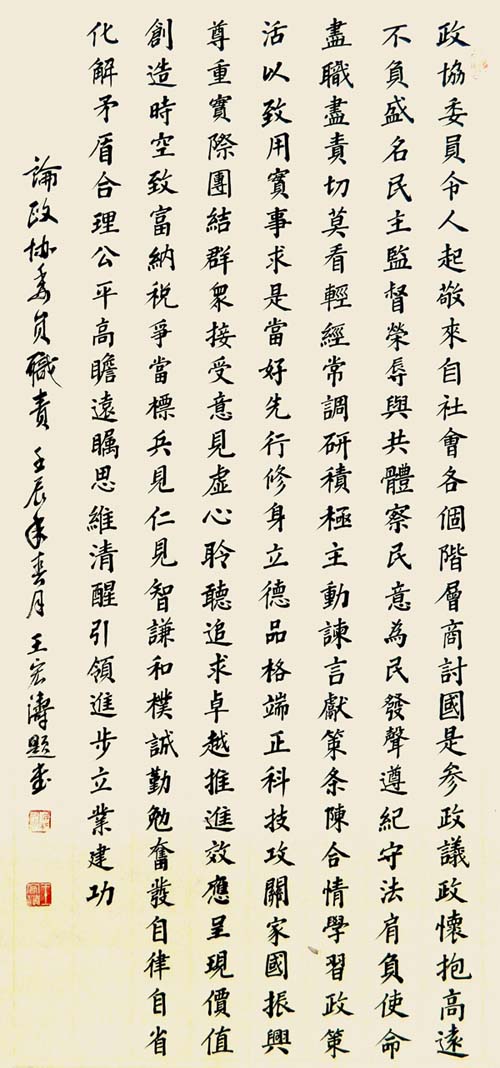 政協委員令人起敬來自社會各個階層商討國是參政議政懷抱高遠
不負盛名民主監督榮辱與共體察民意為民發聲遵紀守法肩負使命
盡職盡責切莫看輕經常調研積極主動諫言獻策条陳合情學習政策
活以致用實事求是當好先行修身立德品格端正科技攻關家國振興
尊重實際團結群眾接受意見虛心聆聽追求卓越推進效應呈現價值
創造時空致富納税爭當標兵見仁見智謙和樸誠勤勉奮發自律自省
化解矛盾合理公平高瞻遠瞩思維清醒引領進步立業建功
論政協委員職責 壬辰年春月 王宏濤題書